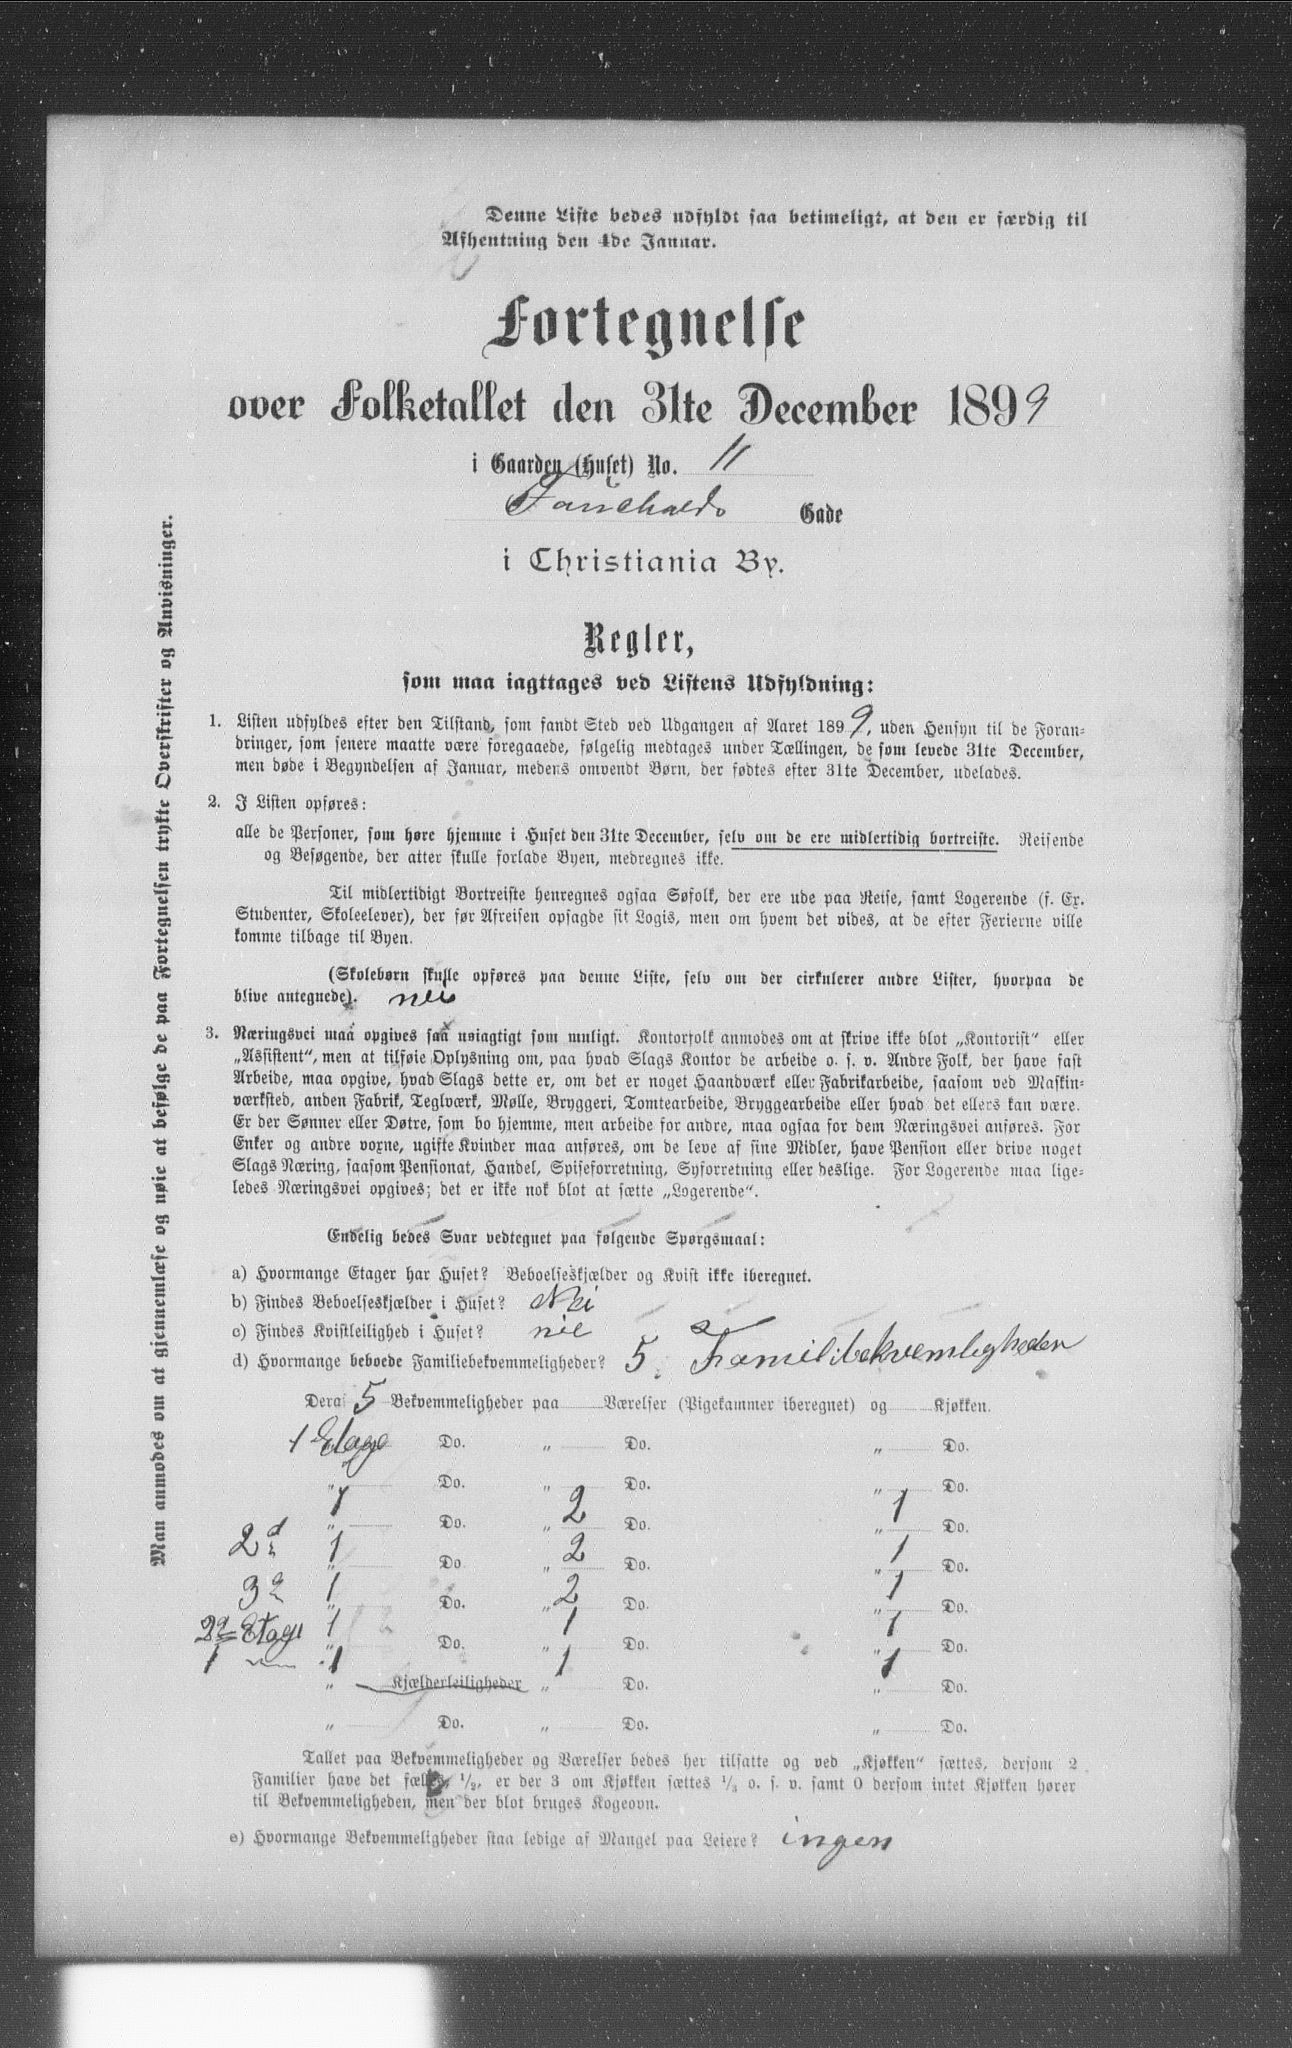 Denne Liste bedes udfyldt saa betimeligt, at den er færdig til
Afhentning den 4de Januar.
Fortegnelse
over Folketallet den 31te December 1899
i Gaarden (Huset) No. 11
Gade
i Christiania By.
Regler,
som maa iagttages ved Listens Udfyldning:
1. Listen udfyldes efter den Tilstand, som fandt Sted ved Udgangen af Aaret 1899, uden Hensyn til de Foran-
dringer, som senere maatte være foregaaede, følgelig medtages under Tællingen, de som levede 31te December,
men døde i Begyndelsen af Januar, medens omvendt Børn, der fødtes efter 31te December, udelades.
2. I Listen opføres:
alle de Personer, som høre hjemme i Huset den 31te December, selv om de ere midlertidig bortreiste. Reisende
og Besøgende, der atter skulle forlade Byen, medregnes ikke.
Til midlertidigt Bortreiste henregnes ogsaa Søfolk, der ere ude paa Reise, samt Logerende (f. Ex.
Studenter, Skoleelever), der før Afreisen opsagde sit Logis, men om hvem det vides, at de efter Ferierne ville
komme tilbage til Byen.
(Skolebørn skulle opføres paa denne Liste, selv om der cirkulerer andre Lister, hvorpaa de
blive antegnede). nei
3. Næringsvei maa opgives saa nøiagtigt som muligt. Kontorfolk anmodes om at skrive ikke blot „Kontorist“ eller
„Assistent“, men at tilføie Oplysning om, paa hvad Slags Kontor de arbeide o. s. v. Andre Folk, der have fast
Arbeide, maa opgive, hvad Slags dette er, om det er noget Haandværk eller Fabrikarbeide, saasom ved Maskin-
værksted, anden Fabrik, Teglværk, Mølle, Bryggeri, Tomtearbeide, Bryggearbeide eller hvad det ellers kan være.
Er der Sønner eller Døtre, som bo hjemme, men arbeide for andre, maa ogsaa for dem Næringsvei anføres. For
Enker og andre vorne, ugifte Kvinder maa anføres, om de leve af sine Midler, have Pension eller drive noget
Slags Næring, saasom Pensionat, Handel, Spiseforretning, Syforretning eller deslige. For Logerende maa lige-
ledes Næringsvei opgives; det er ikke nok blot at sætte „Logerende“.
Endelig bedes Svar vedtegnet paa følgende Spørgsmaal:
a) Hvormange Etager har Huset? Beboelseskjælder og Kvist ikke iberegnet.
b) Findes Beboelseskjælder i Huset? Nei
c) Findes Kvistleilighed i Huset? nei
d) Hvormange beboede Familiebekvemmeligheder? 5. Familibekvemligheden
Deraf 5 Bekvemmeligheder paa Værelser (Pigekammer iberegnet) og Kjøkken.
1 Etage Do. „ Do. „ Do.
„ Do. „ Do. „ Do.
„ 1 Do. „ 2 Do. „ 1 Do.
2d „ 1 Do. „ 2 Do. „ 1 Do.
3d „ 1 Do. „ 2 Do. „ 1 Do.
2d Etage „ 1 Do. „ 1 Do. „ 1 Do.
1 „ 1 Kjælderleiligheder „ 1 Do. „ 1 Do.
„ Do. „ Do. „ Do.
Tallet paa Bekvemmeligheder og Værelser bedes her tilsatte og ved „Kjøkken“ sættes, dersom 2
Familier have det fælles, 1/2, er der 3 om Kjøkken sættes 1/3 o. s. v. samt 0 dersom intet Kjøkken hører
til Bekvemmeligheden, men der blot bruges Kogeovn.
e) Hvormange Bekvemmeligheder staa ledige af Mangel paa Leiere? ingen
Man anmodes om at gjennemlæse og nøie at befølge de paa Fortegnelsen trykte Overskrifter og Anvisninger.